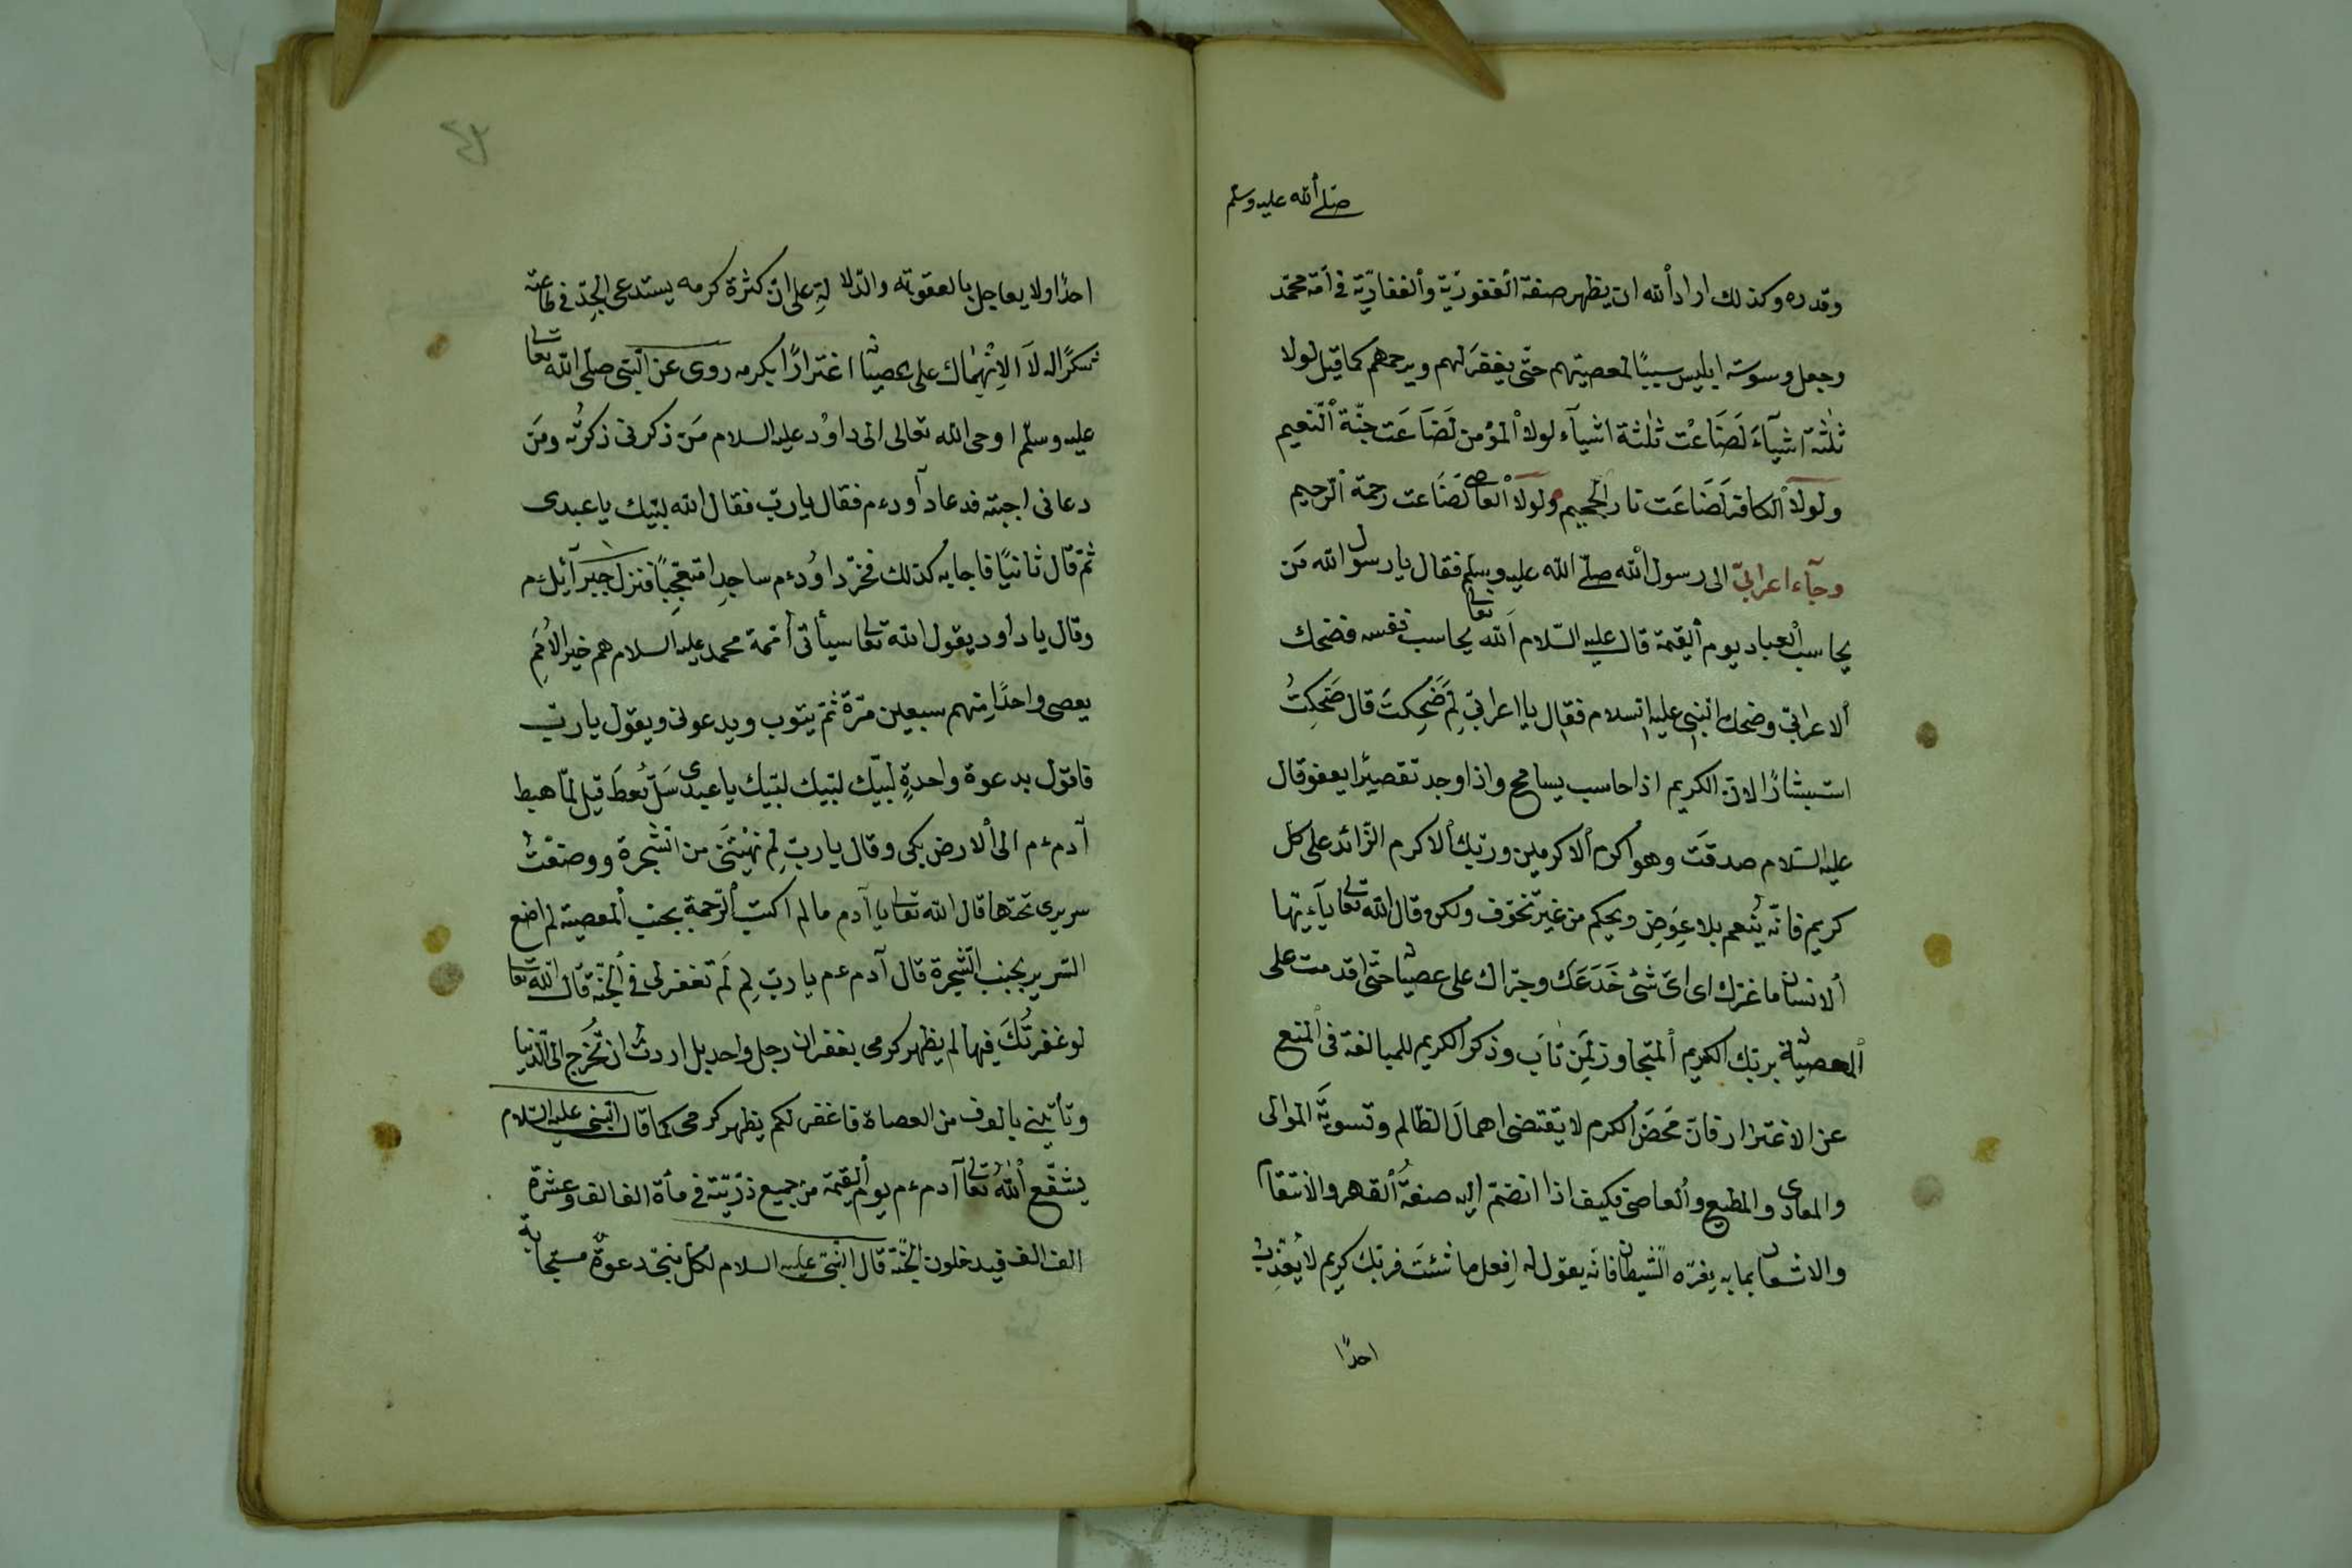 صلى الله عليه وسلم
وقدره وكذلك اراد الله ان يظهر صفة الغفورية والغفارية في امة محمد
وجعل وسوسة ابليس سببا لمعصيتهم حتى يغفر لهم ويرحمهم كما قيل لولا
ثلثة اشيآء لضاعت ثلثة اشيآء لولا المؤمن لضاعت جنة النعيم
ولولا الكافر لضاعت نار الجحيم ولولا العاصى لضاعت رحمة الرحيم
وجآء اعرابى الى رسول الله صلى الله عليه وسلم فقال يا رسول الله من
يحاسب العباد يوم القيمة قال عليه السلام الله تعالى يحاسب نفسه فضحك
الاعرابى وضحك النبى عليه السلام فقال يا اعرابى لم ضحكت قال ضحكت
استبشارا لان الكريم اذا حاسب يسامح واذا وجد تقصيرا يعفو قال
عليه السلام صدقت وهو اكرم الاكرمين وربك الاكرم الزائد على كل
كريم فانه ينعم بلا عوض ويحكم من غير تخوف ولكن قال الله تعالى يآءيها
الانسان ما غرك اى اى شئ خدعك وجراك على عصيا حتى اقدمت على
بربك الكريم المتجاوز لمن تاب وذكر الكريم للمبالغة فى المنع
عن الاغترار فان محض الكرم لا يقتضى اهمال الظالم وتسوية الموالى
والمعادى والمطيع والعاصى فكيف اذا انضم اليه صفة القهر والانتقام
والاشعار بما به يغره الشيطان فانه يقول له افعل ما شئت فربك كريم لا يعذب
احدا
احدا ولا يعاجل بالعقوبة والدلالة على ان كثرة كرمه يستدعى الجد فى طاعته
شكرا له لا الانهماك على عصيانه اغترارا بكرمه روى عن النبى صلى الله تعالى
عليه وسلم اوحى الله تعالى الى داود عليه السلام من ذكرنى ذكرته ومن
دعانى اجبته فدعا داود ءم فقال يا رب فقال الله لبيك يا عبدى
ثم قال ثانيا فاجابه كذلك فخر داود ءم ساجدا متعجبا فنزل جبرآئيل ءم
وقال يا داود يقول الله تعالى سيأتى امة محمد عليه السلام هم خير الامم
يعصى واحدا منهم سبعين مرة ثم يتوب ويدعونى ويقول يا رب
فاقول بدعوة واحدة لبيك لبيك لبيك يا عبدى سل تعط قيل لما هبط
آدم ءم الى الارض بكى وقال يا رب لم نهيتنى من الشجرة ووضعت
سريرى تحتها قال الله تعالى يا آدم ما لم اكتب الرحمة بجنب المعصية لم اضع
السرير بجنب الشجرة قال آدم ءم يا رب لم لم تغفر لى فى الجنة قال الله تعالى
لو غفرتك فيها لم يظهر كرمى بغفران رجل واحد بل اردت ان تخرج الى الدنيا
وتأتينى بالوف من العصاة فاغفر لكم يظهر كرمى كما قال النبى عليه السلام
يشفع الله تعالى آدم ءم يوم القيمة من جميع ذريته فى مأة الف الف وعشرة
الف الف فيدخلون الجنة قال النبى عليه السلام لكل نبى دعوة مستجابة